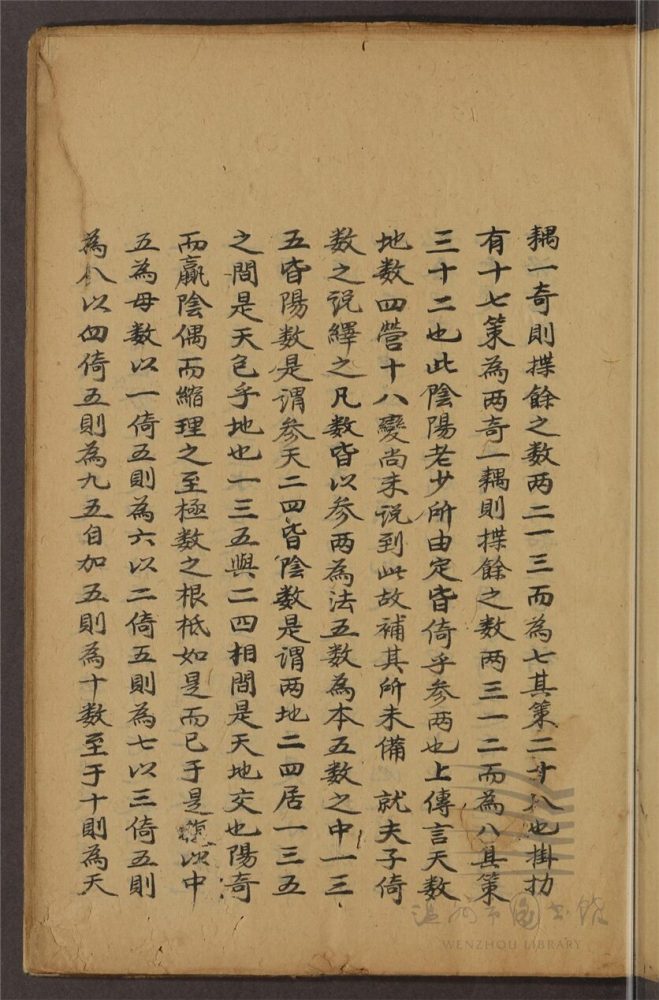 耦一奇則揲餘之數兩二一三而為七其策二十八也掛扐
有十七策為兩奇一耦則揲餘之數兩三一二而為八其策
三十二也此陰陽老少所由定皆倚乎參兩也上傳言天數
地數四營十八變尚未説到此故補其所未備 就夫子倚
數之説繹之凡數皆以參兩為法五數為本五數之中一三
五皆陽數是謂參天二四皆陰數是謂兩地二四居一三五
之間是天包乎地也一三五與二四相間是天地交也陽奇
而贏陰偶而縮理之至極數之根柢如是而已于是以中
五為母數以一倚五則為六以二倚五則為七以三倚五則
為八以四倚五則為九五自加五則為十數至于十則為天
温州市图书馆
WENZHOU LIBRARY